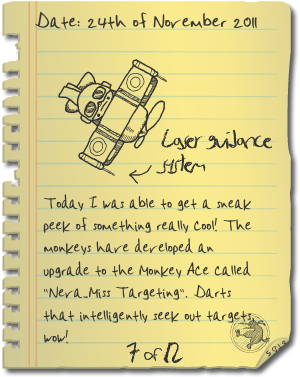 Date: 24th of November 2011
Laser guidance
system
Today I was able to get a sneak
peek of something really cool! The
monkeys have developed an
upgrade to the Monkey Ace called
"Neva-Miss Targeting". Darts
that intelligently seek out targets,
wow!
7 of 12